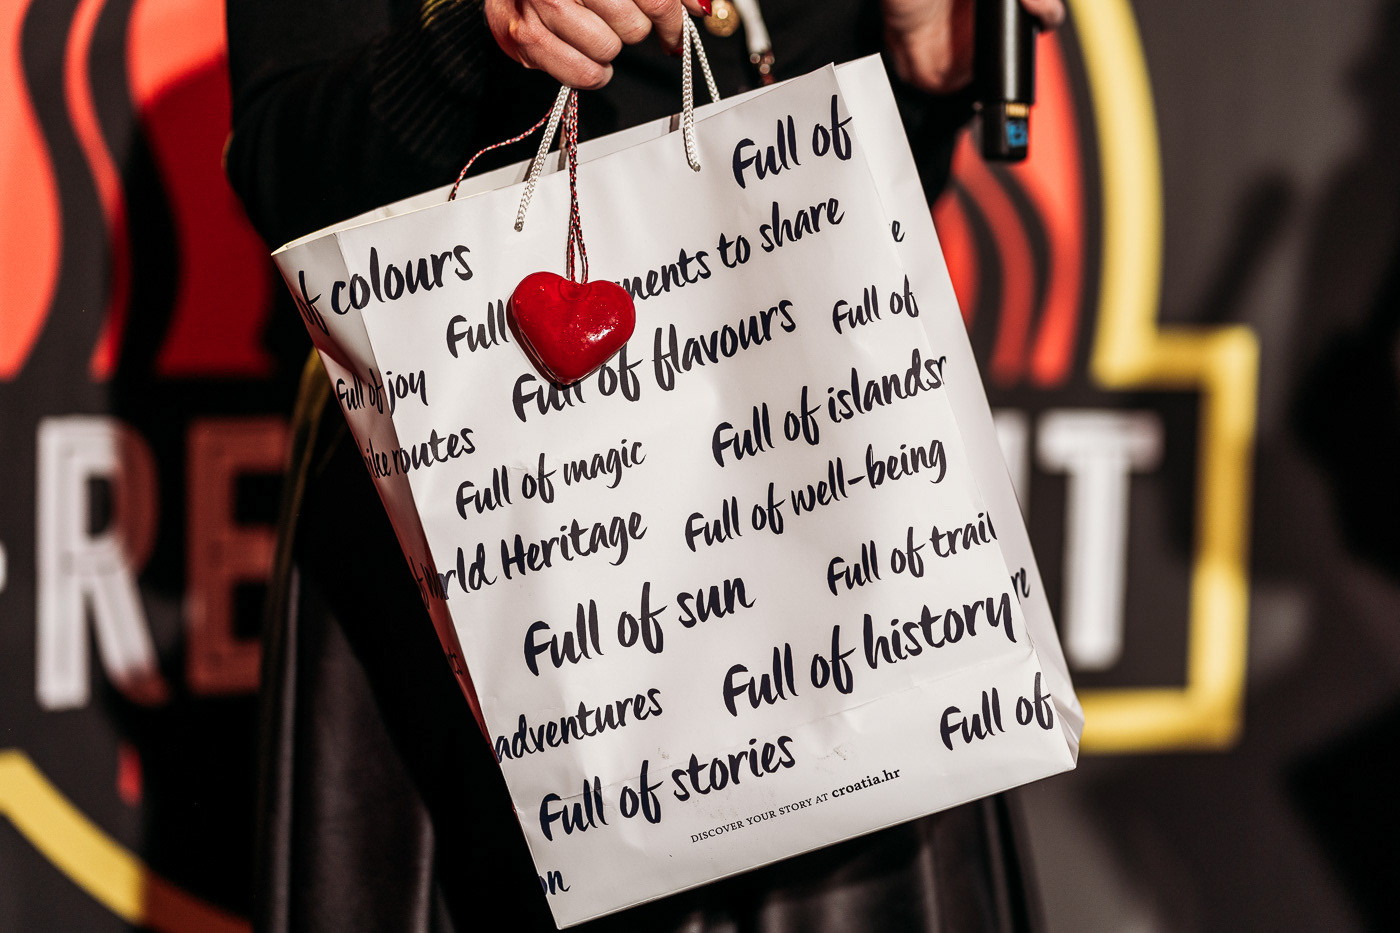 Full of
of colours
Full
ments to share
Full of joy
Full of flavours
Full of
e
bike routes
Full of magic
Full of islands
World Heritage
Full of well-being
Full of sun
Full of trail
adventures
Full of history
re
Full of stories
Full of
DISCOVER YOUR STORY AT croatia.hr
on
RE
IT